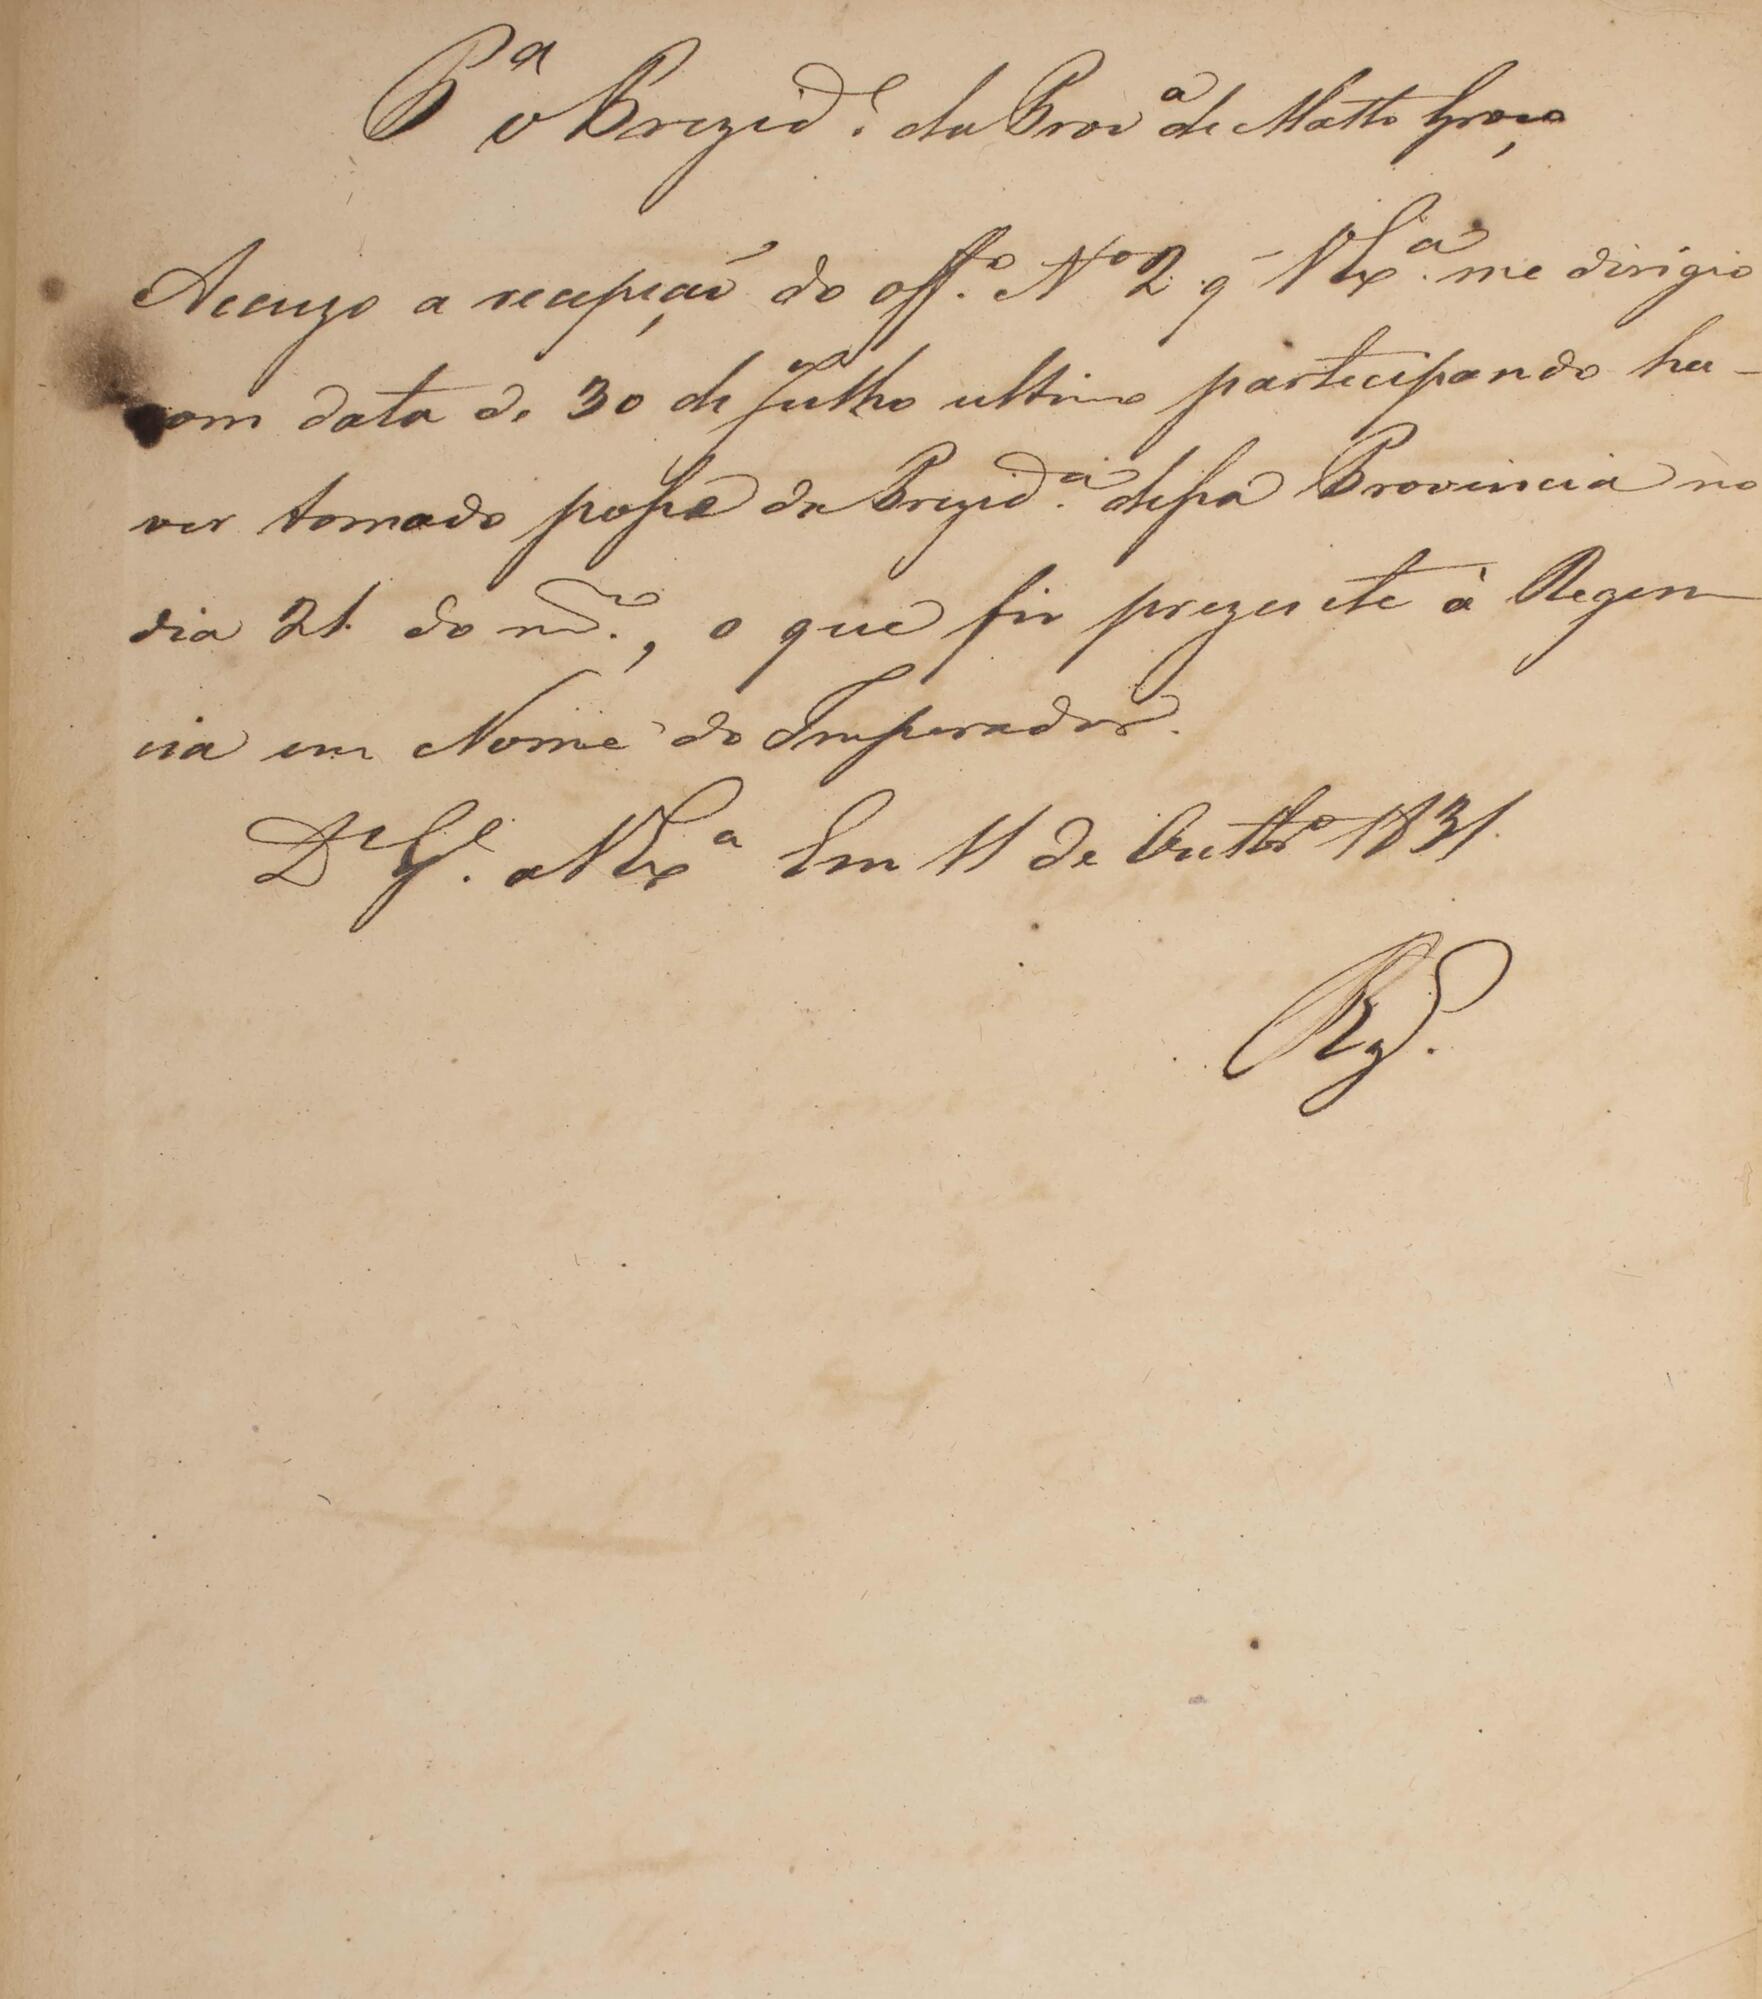 Pª o Prezid.e da Provª de Matto Groço
Accuzo a recepçaõ do off.º Nº 2 q̃ V Exª. me dirigio
com data de 30 de Julho ultimo participando ha-
ver tomado posse da Prezid.ª dessa Provincia no
dia 21 do m.mo, o que fiz prezente á Regen
cia em Nome do Imperador.
Ds Ge. a V Exª Em 11 de Outbrº 1831.